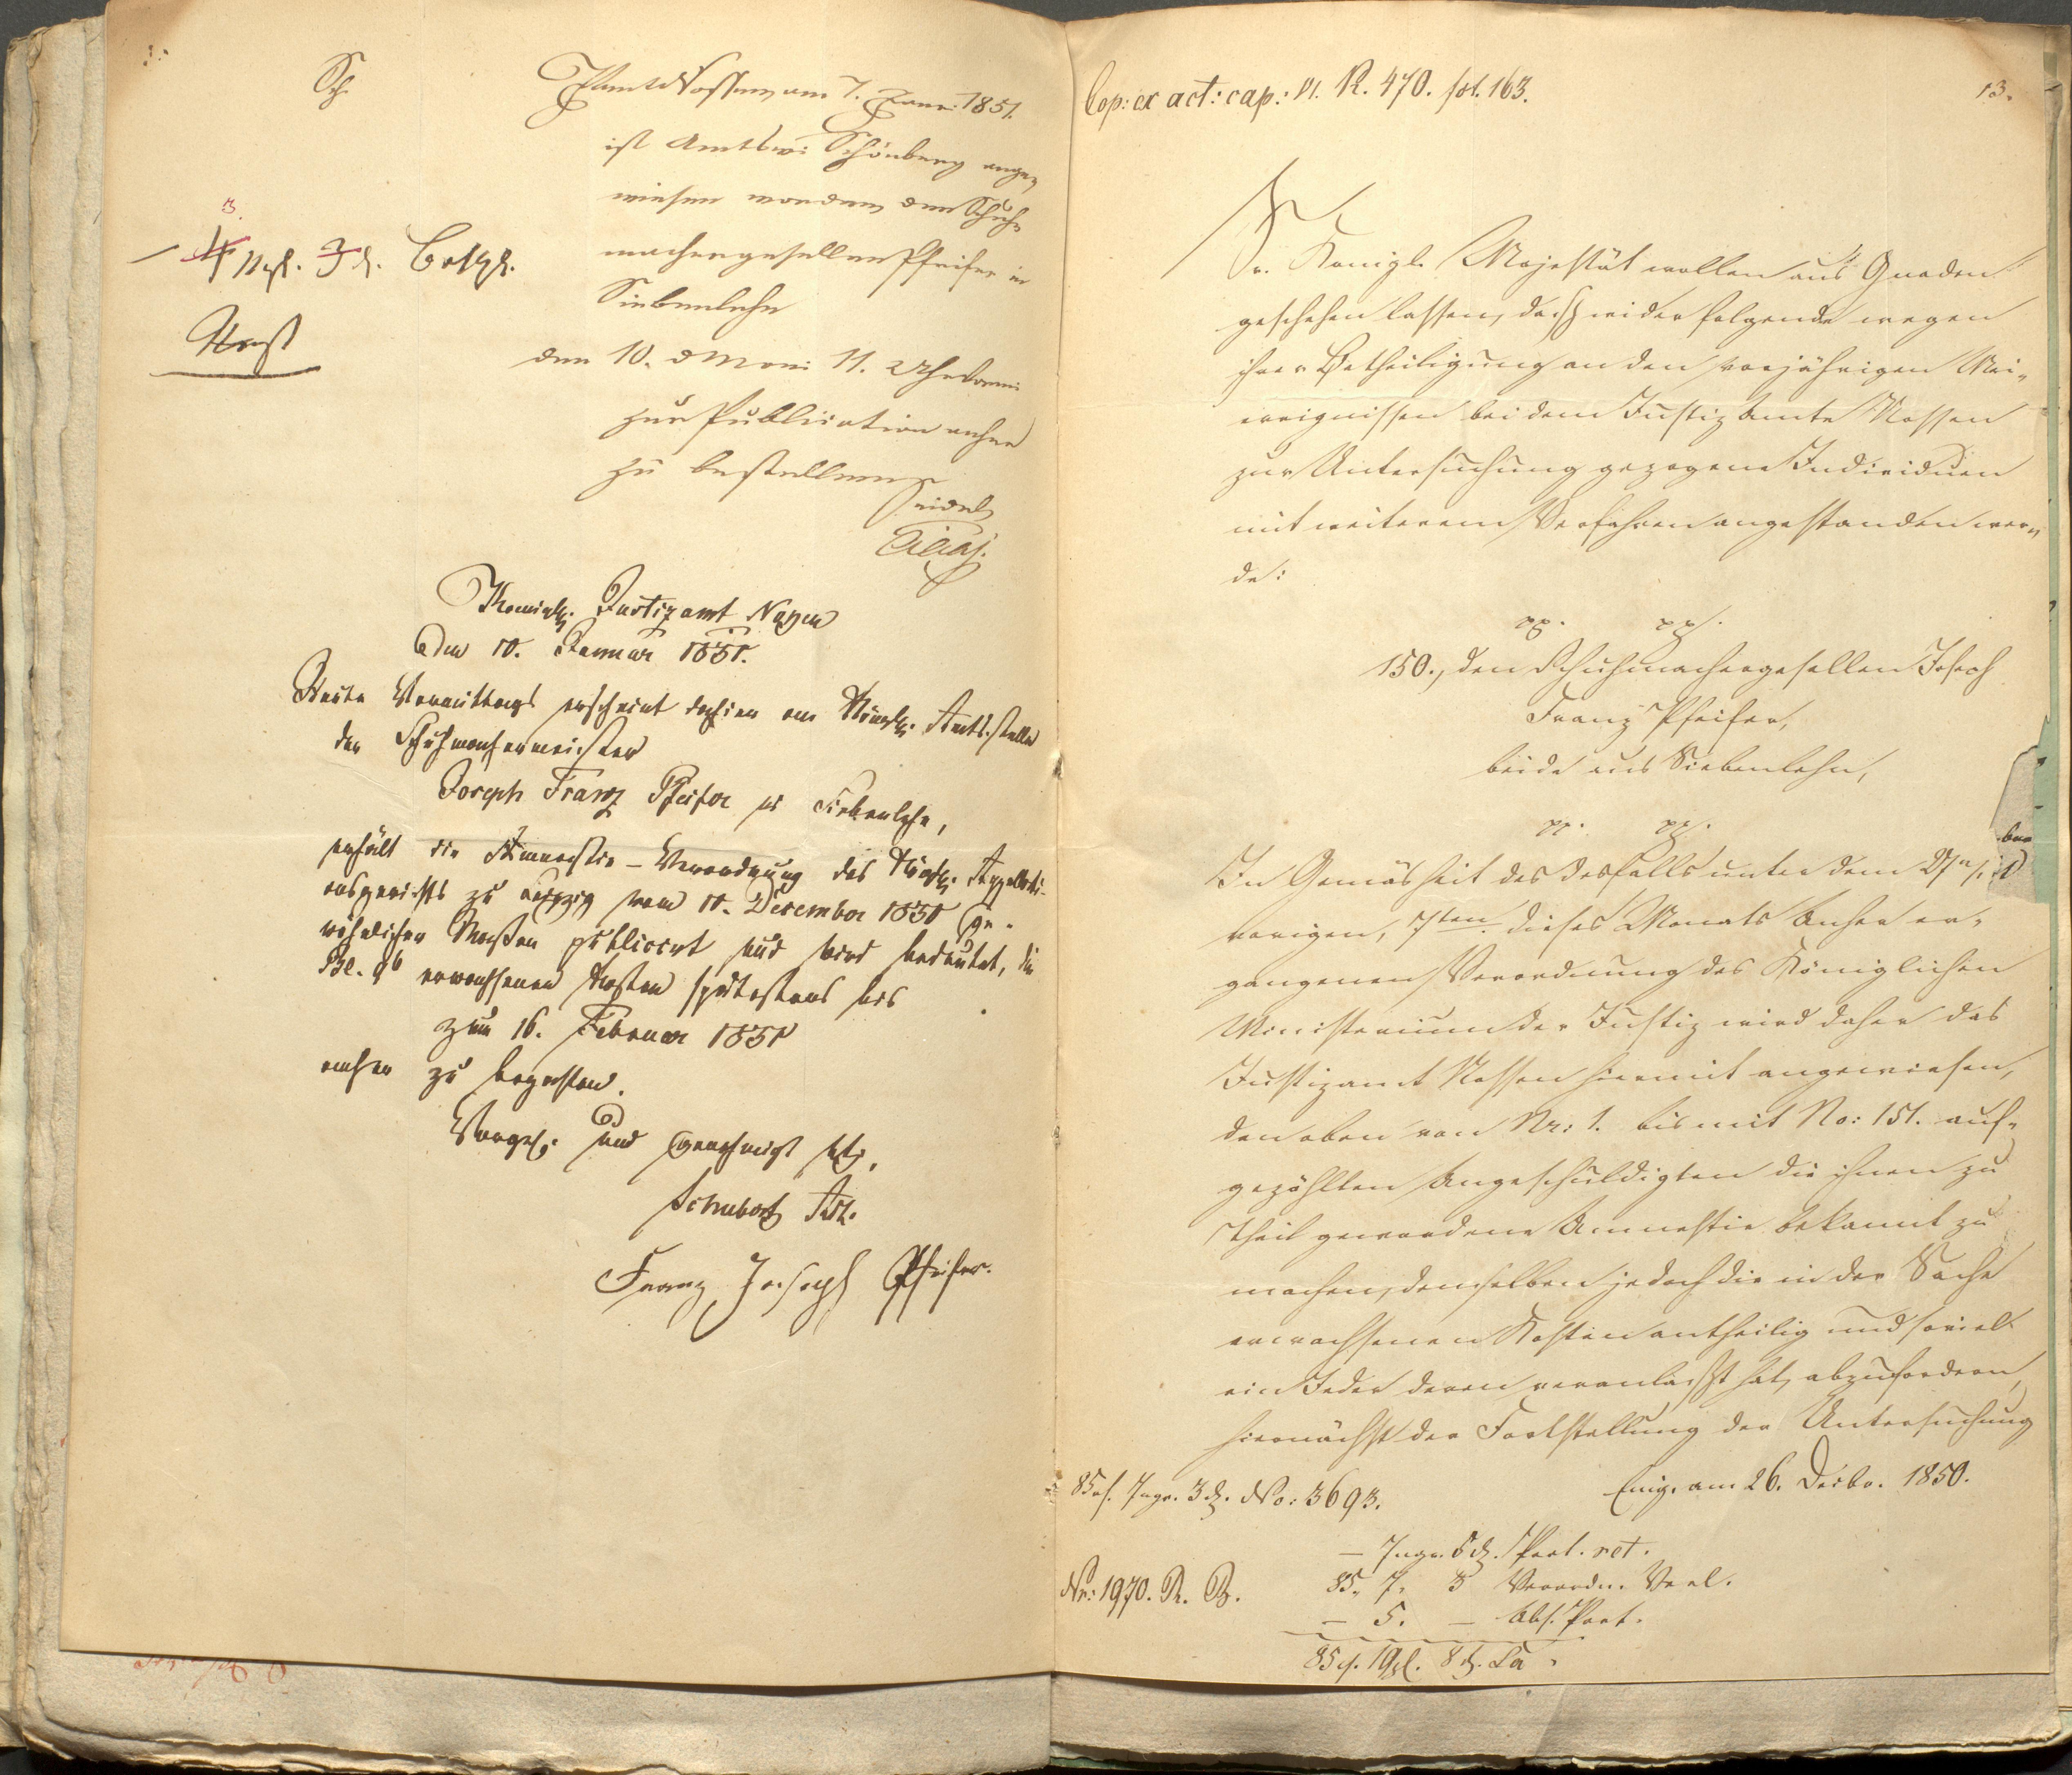 Sch
JAmt Nossen, am 7. Januar 1851.
ist Amtsw: Schönberg ange-
wiesen worden, den Schuh-
machergesellen Pfeifer in
Siebenlehn
den 10. Vorm: 11. Uhr
zur Publication anher
zu bestellen.
Seidel
Act.
3.
4 Ngr. 3 d. Botgb.
Königl. Justizamt Nossen
den 10. Januar 1851.
Heute Vormittags erscheint dahier an Königl. Amtsstelle
der Schuhmachermeister
Joseph Franz Pfeifer zu Siebenlehn,
erhält die Amnestie-Verordnung des Königl. Appellati-
onsgerichts zu Leipzig vom 10. December 1850 ge-
wöhnlicher Maßen publicirt und wird bedeutet, die
Bl. 9b erwachsenen Kosten spätestens bis
zum 16. Februar 1851
anher zu bezahlen.
Vorgel. und genehmigt
Schubert Act.
Franz Joseph Pfeifer.
Cop: ex act: cap: VI. R. 470. fol. 163.
13.
Sr. Königl. Majestät wollen aus Gnaden
geschehen lassen, daß wider folgende wegen
ihrer Betheiligung an den vorjährigen Mai-
ereignissen bei dem Justizamte Nossen
zur Untersuchung gezogene Individuen
mit weiterem Verfahren angestanden wer-
de:
pp. pp.
150., den Schuhmachergesellen Joseph
Franz Pfeifer,
beide aus Siebenlehn,
pp. pp.
In Gemäsheit der desfalls unter dem
vorigen, 7ten dieses Monats anher er-
gangenen Verordnung des Königlichen
Ministerium der Justiz wird daher das
Justizamt Nossen hiermit angewiesen,
den oben von Nr: 1. bis mit No: 151. auf-
gezählten Angeschuldigten die ihnen zu
Theil gewordene Amnestie bekannt zu
machen, denselben jedoch die in der Sache
erwachsenen Kosten antheilig und soviel
ein Jeder deren veranlaßt hat, abzufordern,
hiernächst der Fortstellung der Untersuchung
85 rf. 7 ngr. 3 d. No: 3693.
Eing. am 26. Decbr. 1850.
— 7 ngr. 5 d. Port. ret.
Nr: 1970. R. B.
85. 7. 3 Verordn. Verl.
— 5. — Abs. Port.
85 rf. 19 gl. 8 d. Sa.